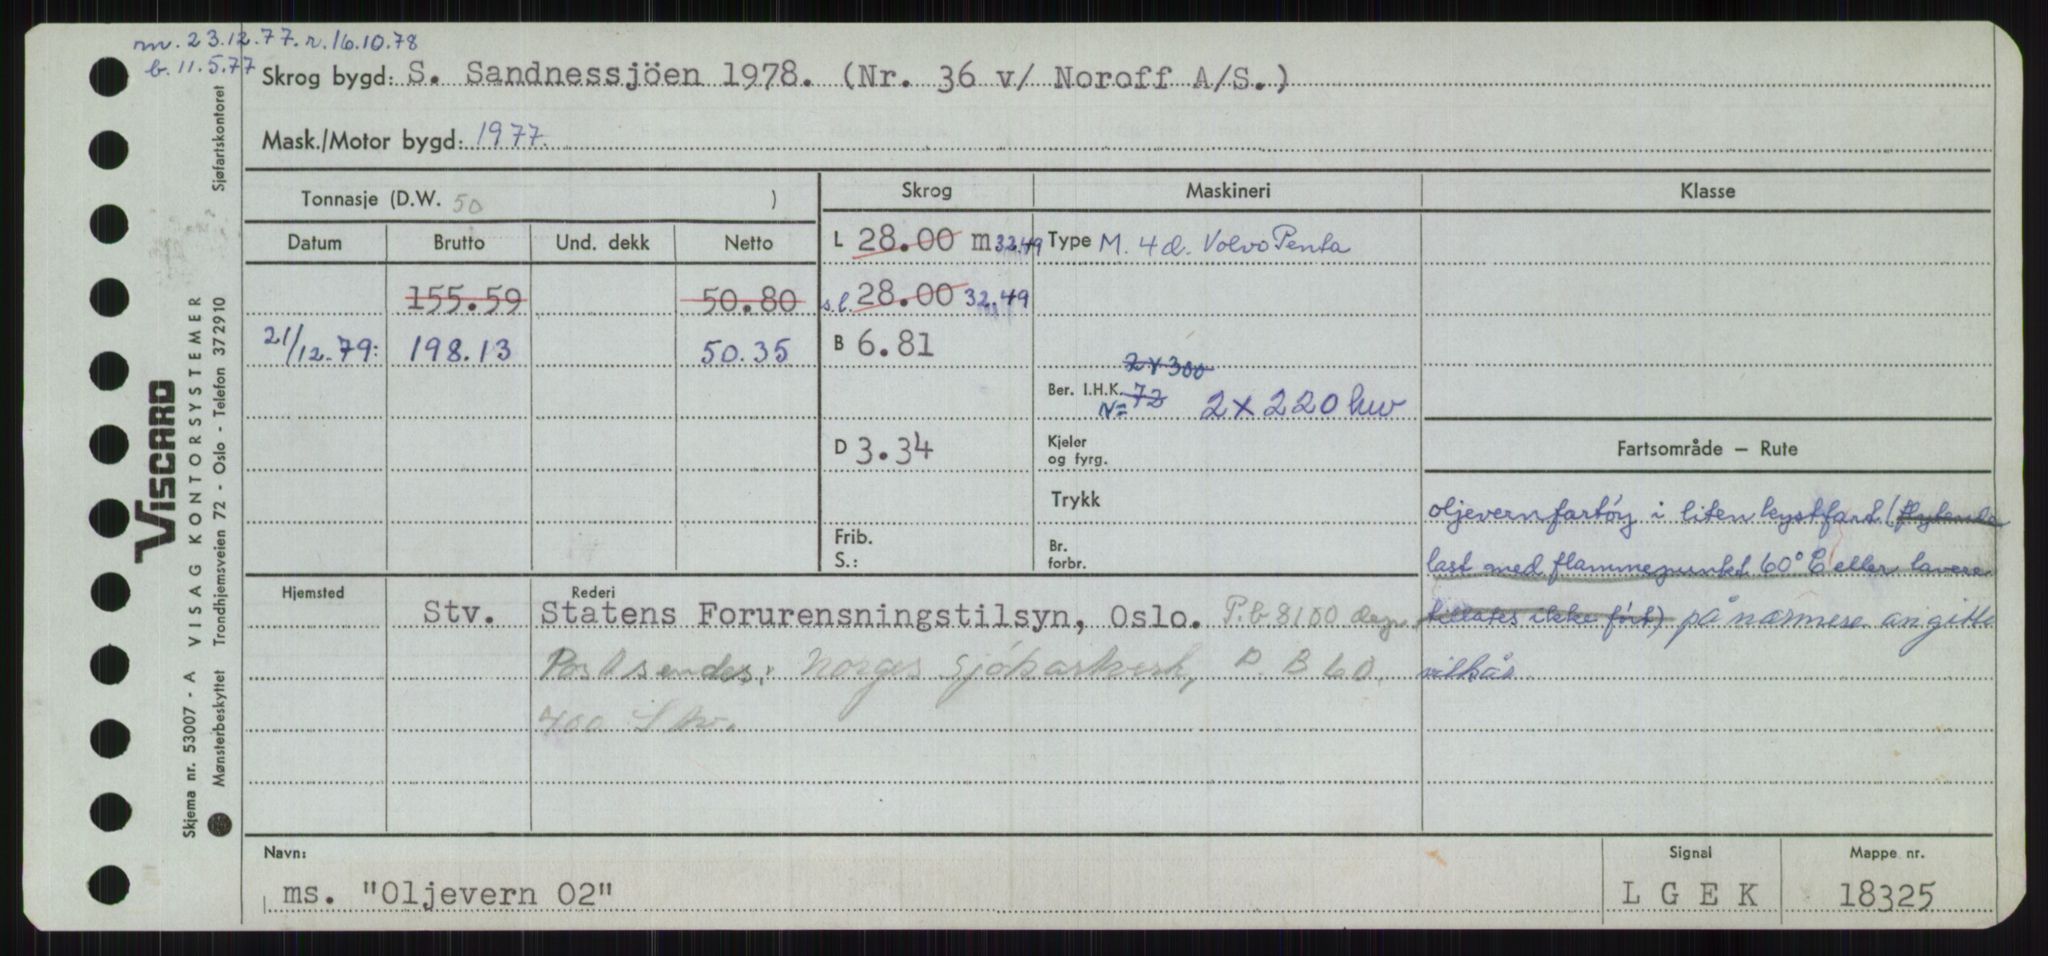 m. 23.12.77. r. 16.10.78
b. 11.5.77
Skrog bygd: S. Sandnessjöen 1978. (Nr. 36 v/ Noroff A/S.)
Mask./Motor bygd: 1977.
Tonnasje (D.W. 50 )
Skrog
Maskineri
Klasse
Datum
Brutto
Und. dekk
Netto
L 28.00 m 32.49
Type M. 4 d. Volvo Penta
155.59
50.80
s.l. 28.00 32.49
21/12.79: 198.13
50.35
B 6.81
2 x 300
Ber. I.H.K. 72
N= 2 x 220 kw
D 3.34
Kjeler
og fyrg.
Fartsområde — Rute
Trykk
oljevernfartöy i liten kystfart (flytende
Frib.
S.:
Br.
forbr.
last med flammepunkt 60° C eller lavere
tillates ikke fört) på nærmere angitte
vilkår.
Hjemsted
Stv.
Rederi
Statens Forurensningstilsyn, Oslo. P.b 8100 dep.
Post sendes: Norges Sjökartverk, P. B 60.
400 Stv.
Navn:
ms. "Oljevern 02"
Signal
L G E K
Mappe nr.
18325
VISCARD
Skjema nr. 53007 - A VISAG KONTORSYSTEMER
Mønsterbeskyttet Trondhjemsveien 72 - Oslo - Telefon 372910 Sjøfartskontoret